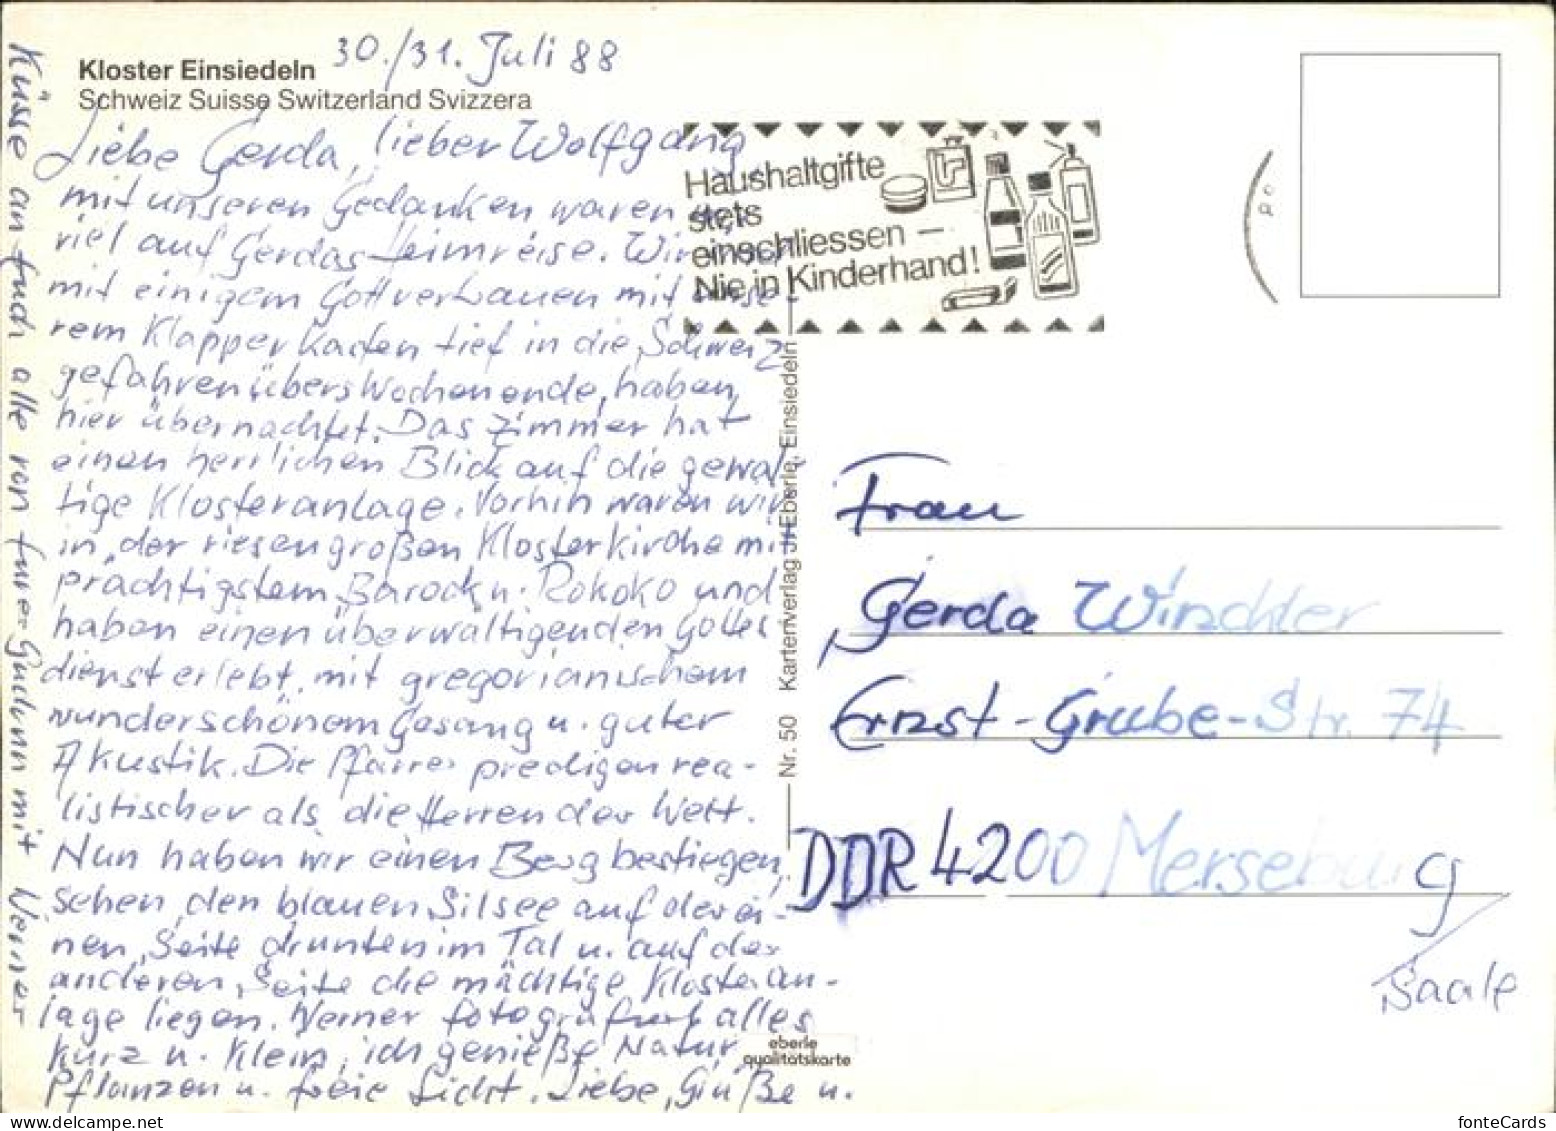 Kloster Einsiedeln
Schweiz Suisse Switzerland Svizzera
30./31. Juli 88
Liebe Gerda, lieber Wolfgang,
mit unseren Gedanken waren wir
viel auf Gerdas Heimreise. Wir
mit einigem Gottvertrauen mit unse-
rem Klapperkasten tief in die Schweiz
gefahren übers Wochenende, haben
hier übernachtet. Das Zimmer hat
einen herrlichen Blick auf die gewal-
tige Klosteranlage. Vorhin waren wir
in der riesengroßen Klosterkirche mit
prächtigstem Barock u. Rokoko und
haben einen überwältigenden Gottes
dienst erlebt, mit gregorianischem
wunderschönem Gesang u. guter
Akustik. Die Pfarrer predigen rea-
listischer als die Herren der Welt.
Nun haben wir einen Berg bestiegen,
sehen den blauen Silsee auf der ei-
nen Seite drunten im Tal u. auf der
anderen Seite die mächtige Klosteran-
lage liegen. Werner fotografiert alles
kurz u. klein, ich genieße Natur,
Pflanzen u. freie Sicht. Liebe Grüße u.
Küsse an Euch alle von Eurer Gudrun mit Werner
Haushaltgifte
stets
einschliessen –
Nie in Kinderhand!
Nr. 50 Kartenverlag J. Eberle, Einsiedeln
Frau
Gerda Winckler
Ernst-Grube-Str. 74
DDR 4200 Merseburg
Saale
eberle
qualitätskarte
fonteCards